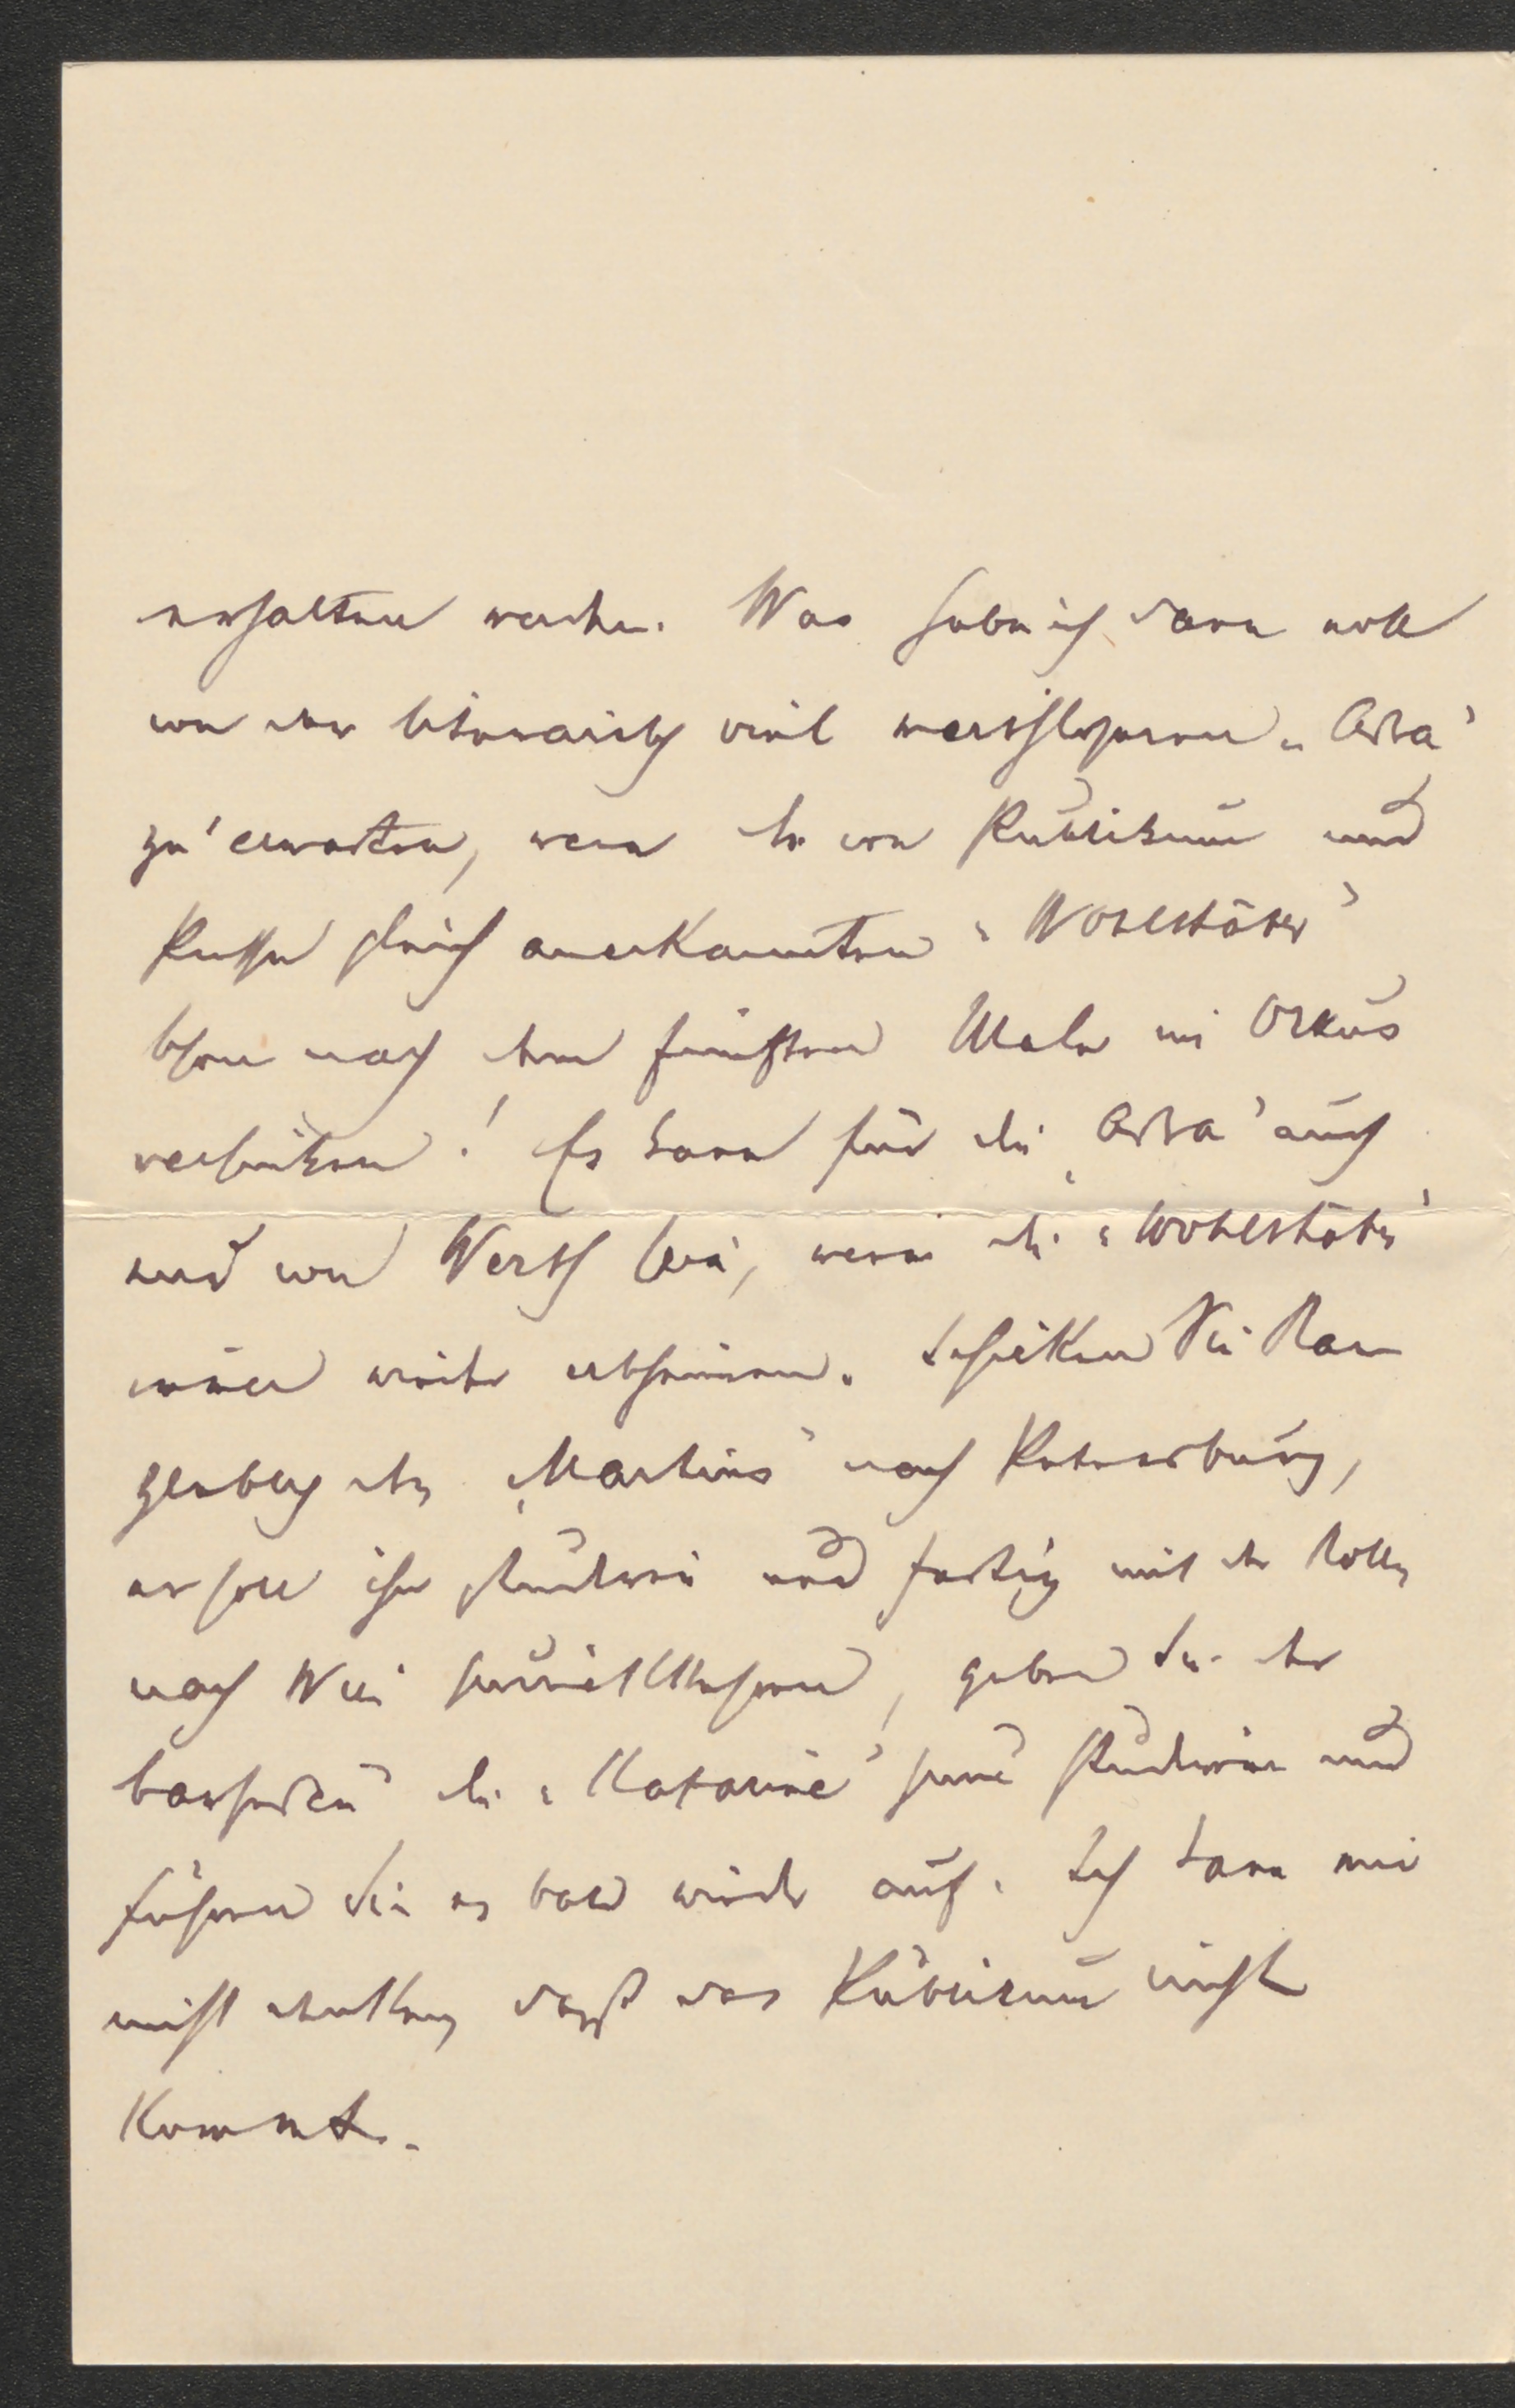 erhalten werden. Was habe ich dann noll
von der literarisch viel werthloseren „Asra"
zu erwarten, wenn die von Publikum und
Presse gleich anerkannten „Wohlthäter"
schon nach dem fünften Male im Orkus
versinken! Es kann für die „Asra" auch
nur von Werth sein, wenn die „Wohlthäter"
immer wieder erscheinen. Schicken Sie
den „Martius" nach Petersburg,
er soll ihn studiren und fertig mit der Rolle
nach Wien zurückkehren, geben Sie der
die „Katarine" zum Studiren und
führen Sie es bald wieder auf. Ich kann mir
nicht denken, daß das Publikum nicht
kommt.